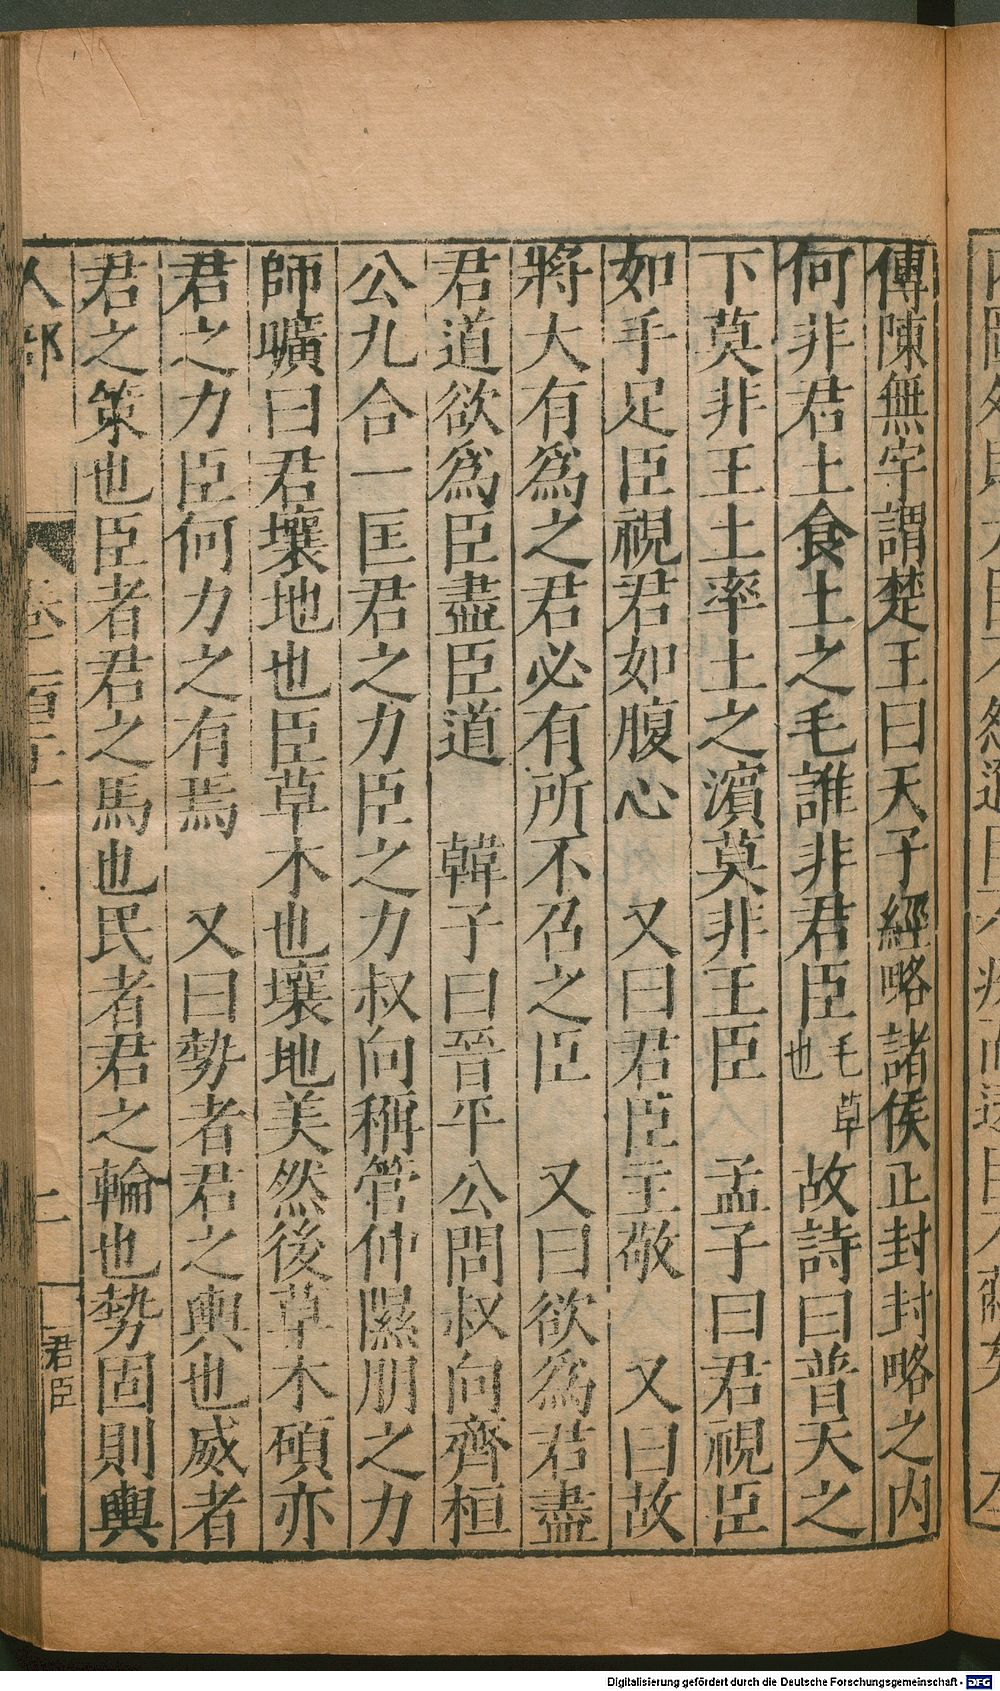 傳陳無宇謂楚王曰天子經略諸侯正封封略之内
何非君土食土之毛誰非君臣毛草也故詩曰普天之
下莫非王土率土之濵莫非王臣　孟子曰君視臣
如手足臣視君如腹心　又曰君臣主敬　又曰故
將大有爲之君必有所不召之臣　又曰欲爲君盡
君道欲爲臣盡臣道　韓子曰晉平公問叔向齊桓
公九合一匡君之力臣之力叔向稱管仲隰朋之力
師曠曰君壤地也臣草木也壤地美然後草木碩亦
君之力臣何力之有焉　又曰勢者君之輿也威者
君之策也臣者君之馬也民者君之輪也勢固則輿
人部
二
君臣
Digitalisierung gefördert durch die Deutsche Forschungsgemeinschaft - DFG